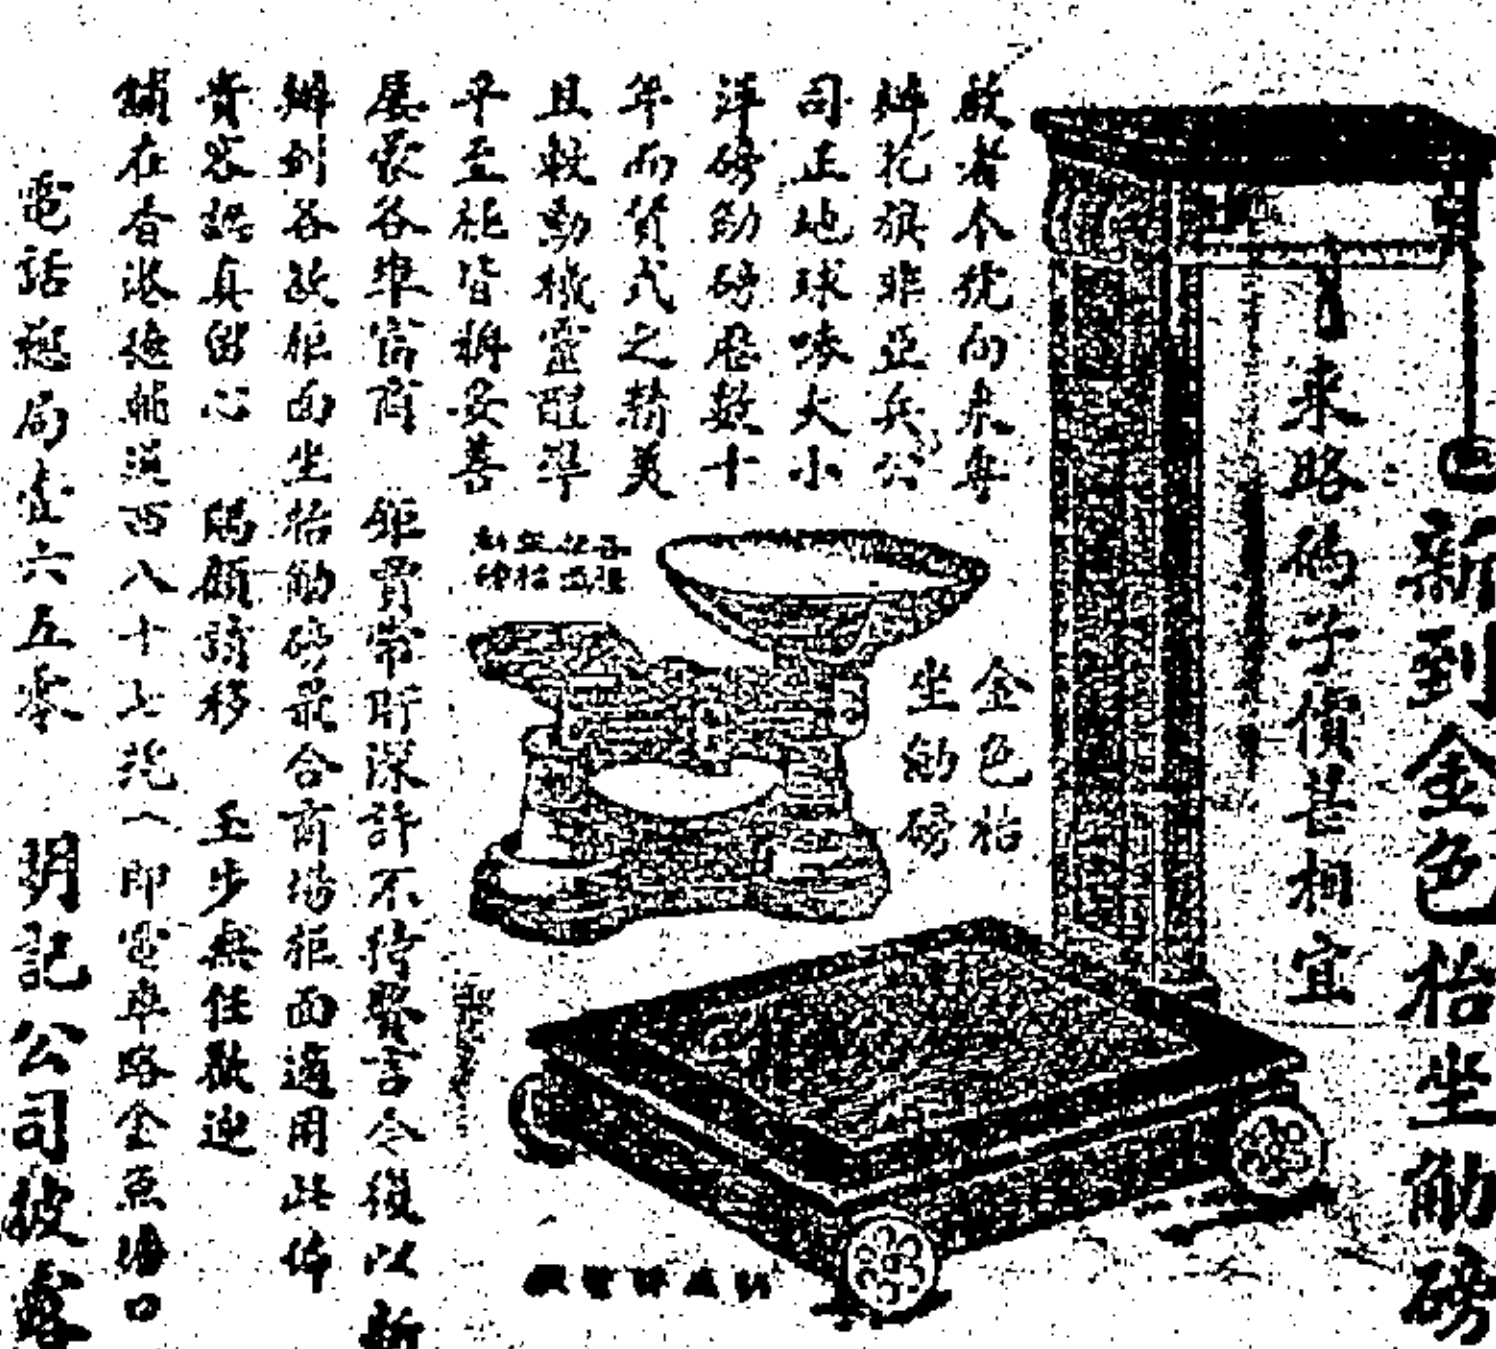 新到金色枱坐觔磅
來路碼子價甚相宜
啟者本號向來專
辦花旗非亞兵公
司正地球嘜大小
洋磅觔磅歷數十
年而貨式之精美
且較動機靈醒準
平至能皆稱妥善
金色枱
坐觔磅
屢蒙各華官商 鉅賈常時深許不待贅言今復以新
辦到各款柜面坐枱觔磅最合商場柜面適用此佈
貴客認真留心 賜顧請移 玉步無任歡迎
舖在香港德輔道西八十七號(即電車路金魚塘口
電話總局壹六五零 明記公司披露